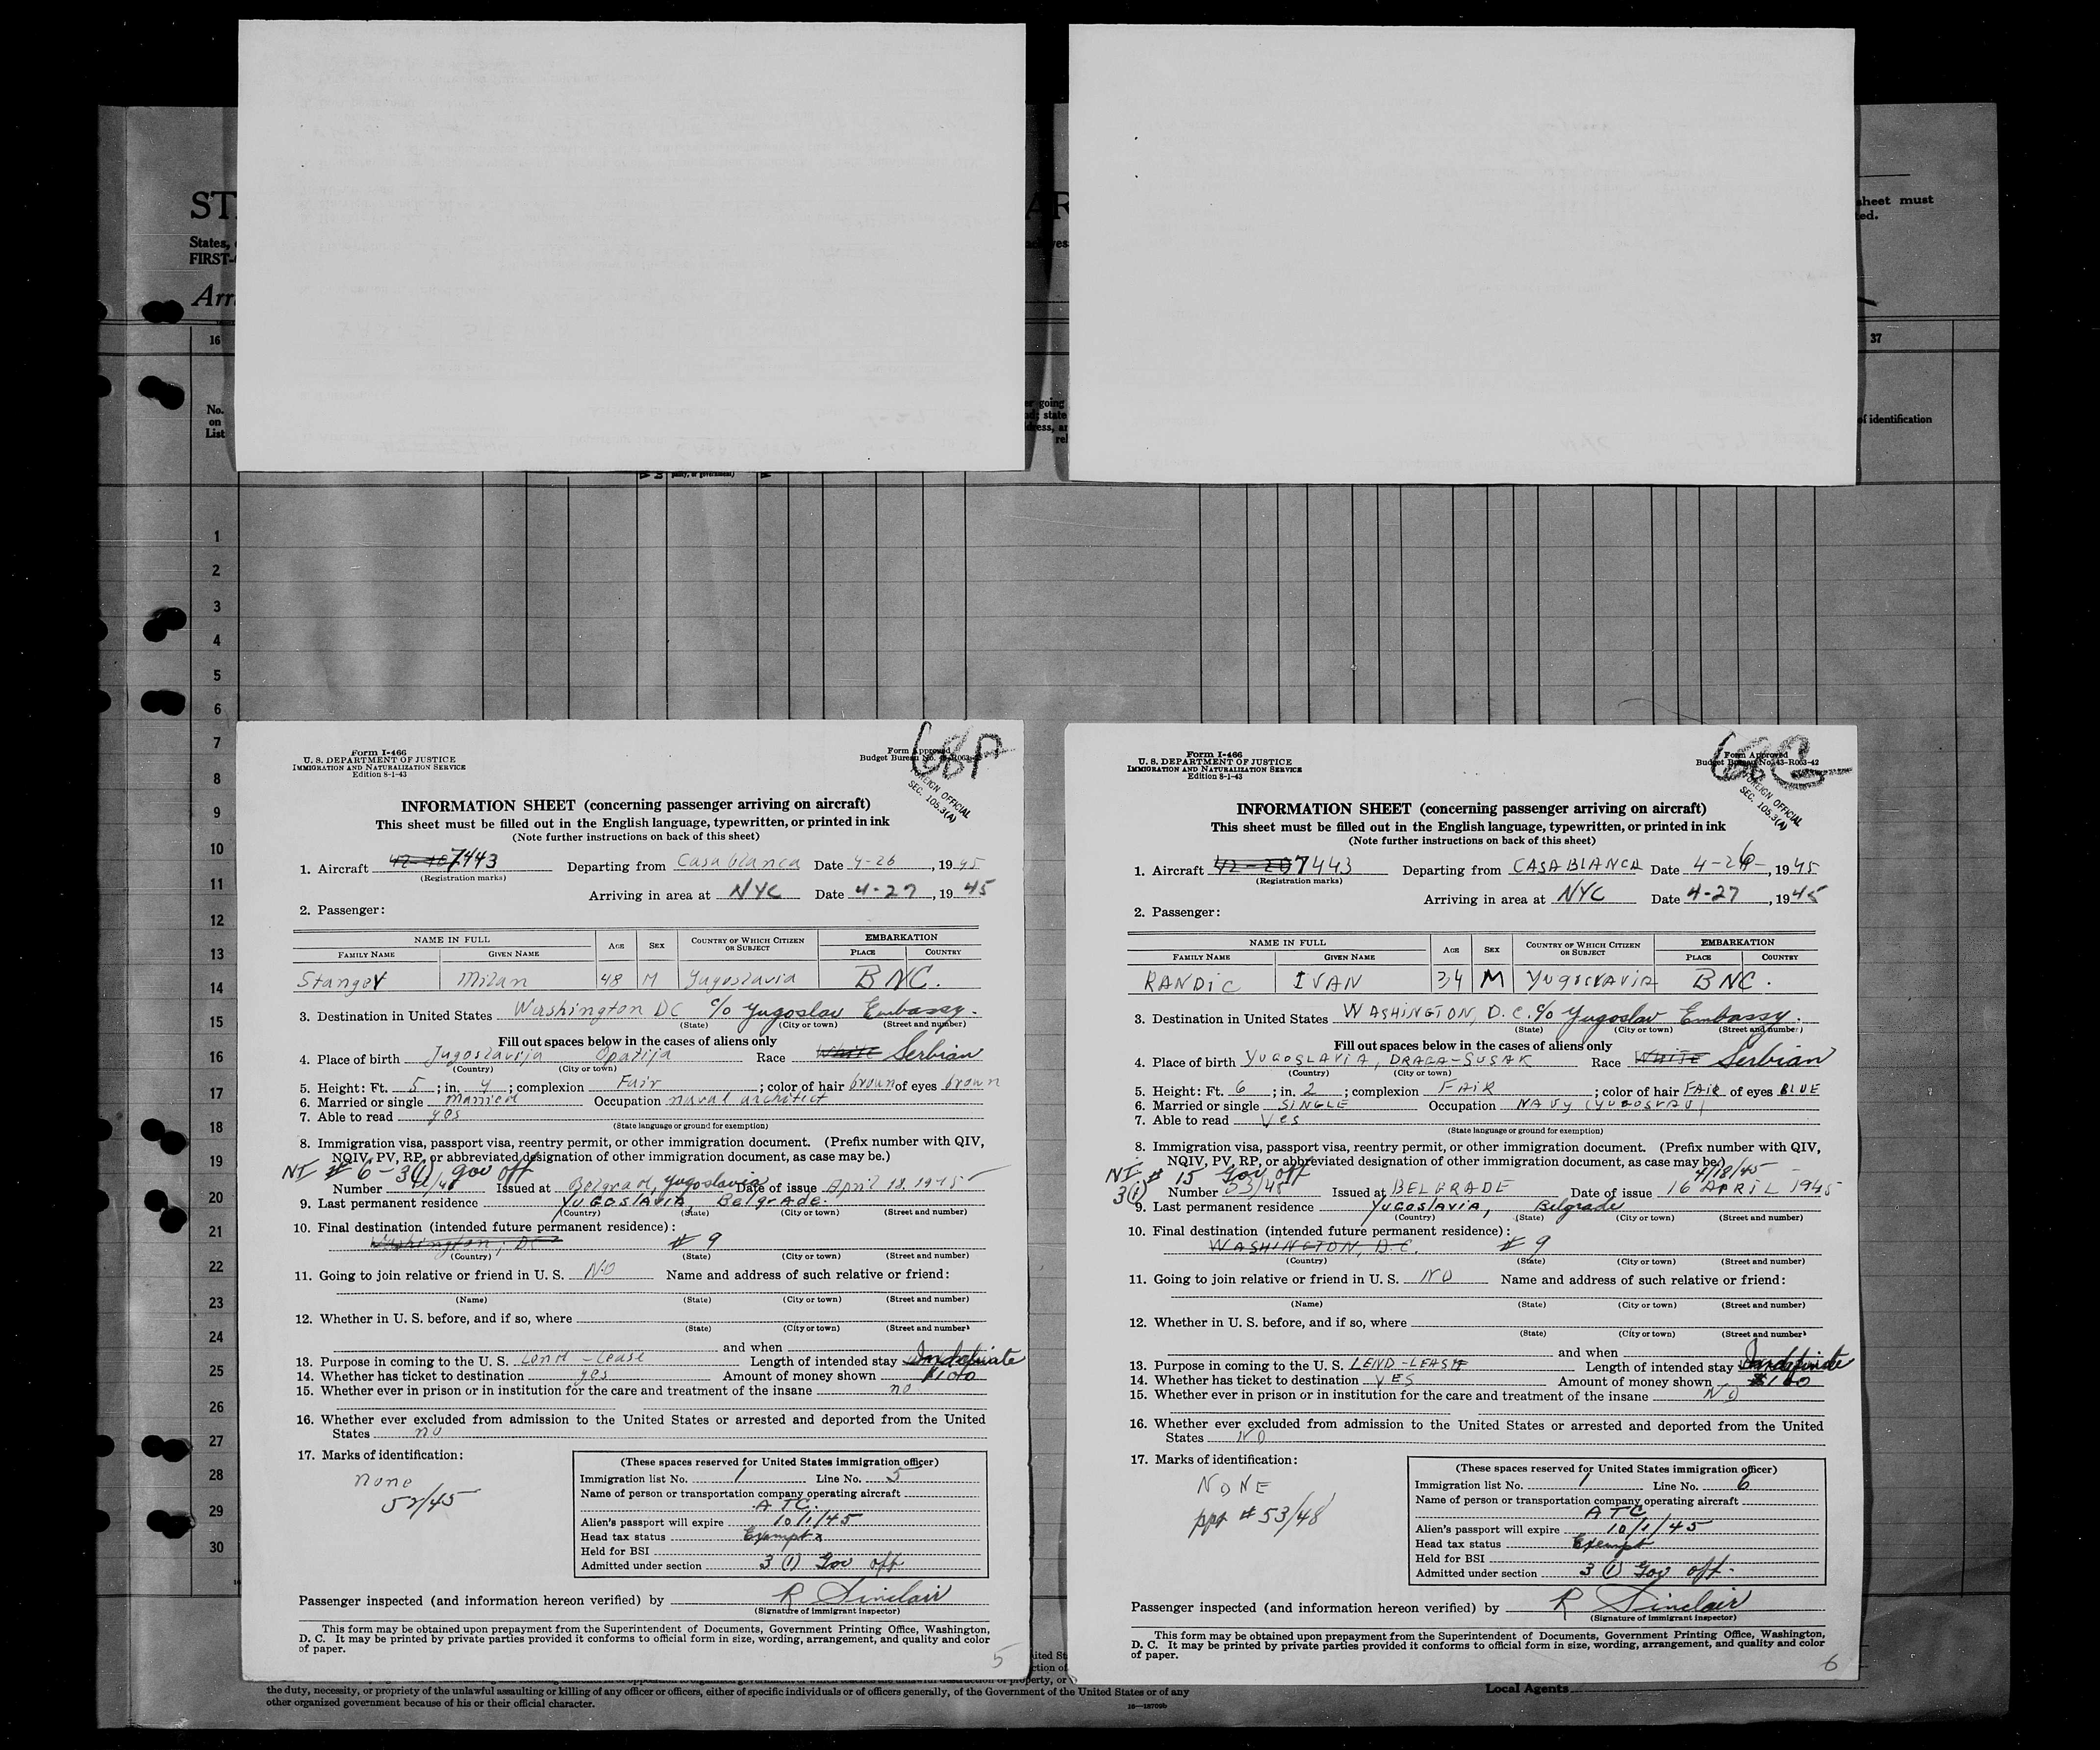 ST
AR
sheet must
ted.
States,
FIRST-
Arr
16
37
No.
on
List
er going
of identification
1
2
3
4
5
6
7
8
9
10
11
12
13
14
15
16
17
18
19
20
21
22
23
24
25
26
27
28
29
30
Form I-466
U. S. DEPARTMENT OF JUSTICE
IMMIGRATION AND NATURALIZATION SERVICE
Edition 8-1-43
Form Approved
Budget Bureau No. 43-R063-42
68A
FOREIGN OFFICIAL
SEC. 105.3(A)
INFORMATION SHEET (concerning passenger arriving on aircraft)
This sheet must be filled out in the English language, typewritten, or printed in ink
(Note further instructions on back of this sheet)
1. Aircraft 7443 Departing from Casablanca Date 4-26, 1945
(Registration marks)
Arriving in area at NYC Date 4-27, 1945
2. Passenger:
NAME IN FULL AGE SEX COUNTRY OF WHICH CITIZEN OR SUBJECT EMBARKATION
FAMILY NAME GIVEN NAME PLACE COUNTRY
Milan 48 M Yugoslavia BNC.
3. Destination in United States Washington DC c/o Yugoslav Embassy.
(State) (City or town) (Street and number)
Fill out spaces below in the cases of aliens only
4. Place of birth Jugoslavija Opatija Race White Serbian
(Country) (City or town)
5. Height: Ft. 5; in. 4; complexion Fair; color of hair brown of eyes brown
6. Married or single married Occupation naval architect
7. Able to read yes
(State language or ground for exemption)
8. Immigration visa, passport visa, reentry permit, or other immigration document. (Prefix number with QIV,
NQIV, PV, RP, or abbreviated designation of other immigration document, as case may be.)
NI # 6 - 3(1) gov off
Number Issued at Belgrad, Yugoslavia Date of issue April 18. 1945
9. Last permanent residence YUGOSLAVIA, Belgrade.
(Country) (State) (City or town) (Street and number)
10. Final destination (intended future permanent residence):
Washington, DC # 9
(Country) (State) (City or town) (Street and number)
11. Going to join relative or friend in U. S. NO Name and address of such relative or friend:
(Name) (State) (City or town) (Street and number)
12. Whether in U. S. before, and if so, where
(State) (City or town) (Street and number)
and when
13. Purpose in coming to the U. S. Lend-Lease Length of intended stay Indefinite
14. Whether has ticket to destination yes Amount of money shown $100
15. Whether ever in prison or in institution for the care and treatment of the insane no
16. Whether ever excluded from admission to the United States or arrested and deported from the United
States no
17. Marks of identification:
none
52/45
(These spaces reserved for United States immigration officer)
Immigration list No. 1 Line No. 5
Name of person or transportation company operating aircraft
ATC.
Alien's passport will expire 10/1/45
Head tax status Exempt
Held for BSI
Admitted under section 3 (1) Gov off
Passenger inspected (and information hereon verified) by R Sinclair
(Signature of immigrant inspector)
This form may be obtained upon prepayment from the Superintendent of Documents, Government Printing Office, Washington,
D. C. It may be printed by private parties provided it conforms to official form in size, wording, arrangement, and quality and color
of paper.
5
Form I-466
U. S. DEPARTMENT OF JUSTICE
IMMIGRATION AND NATURALIZATION SERVICE
Edition 8-1-43
Form Approved
Budget Bureau No. 43-R063-42
FOREIGN OFFICIAL
SEC. 105.3(A)
INFORMATION SHEET (concerning passenger arriving on aircraft)
This sheet must be filled out in the English language, typewritten, or printed in ink
(Note further instructions on back of this sheet)
1. Aircraft 7443 Departing from CASABLANCA Date 4-26, 1945
(Registration marks)
Arriving in area at NYC Date 4-27, 1945
2. Passenger:
NAME IN FULL AGE SEX COUNTRY OF WHICH CITIZEN OR SUBJECT EMBARKATION
FAMILY NAME GIVEN NAME PLACE COUNTRY
RANDIC IVAN 34 M YUGOSLAVIA BNC.
3. Destination in United States WASHINGTON, D.C. c/o Yugoslav Embassy.
(State) (City or town) (Street and number)
Fill out spaces below in the cases of aliens only
4. Place of birth YUGOSLAVIA, DRAGA-SUSAK Race WHITE Serbian
(Country) (City or town)
5. Height: Ft. 6; in. 2; complexion FAIR; color of hair FAIR of eyes BLUE
6. Married or single SINGLE Occupation NAVY (YUGOSLAV)
7. Able to read Yes
(State language or ground for exemption)
8. Immigration visa, passport visa, reentry permit, or other immigration document. (Prefix number with QIV,
NQIV, PV, RP, or abbreviated designation of other immigration document, as case may be.)
NI # 15 Gov off 4/18/45
3(1) Number 53/48 Issued at BELGRADE Date of issue 16 APRIL 1945
9. Last permanent residence YUGOSLAVIA, Belgrade
(Country) (State) (City or town) (Street and number)
10. Final destination (intended future permanent residence):
WASHINGTON, D.C. # 9
(Country) (State) (City or town) (Street and number)
11. Going to join relative or friend in U. S. NO Name and address of such relative or friend:
(Name) (State) (City or town) (Street and number)
12. Whether in U. S. before, and if so, where
(State) (City or town) (Street and number)
and when
13. Purpose in coming to the U. S. LEND-LEASE Length of intended stay Indefinite
14. Whether has ticket to destination YES Amount of money shown $100
15. Whether ever in prison or in institution for the care and treatment of the insane NO
16. Whether ever excluded from admission to the United States or arrested and deported from the United
States NO
17. Marks of identification:
NONE
ppt # 53/48
(These spaces reserved for United States immigration officer)
Immigration list No. 1 Line No. 6
Name of person or transportation company operating aircraft
ATC
Alien's passport will expire 10/1/45
Head tax status Exempt
Held for BSI
Admitted under section 3 (1) Gov off.
Passenger inspected (and information hereon verified) by R Sinclair
(Signature of immigrant inspector)
This form may be obtained upon prepayment from the Superintendent of Documents, Government Printing Office, Washington,
D. C. It may be printed by private parties provided it conforms to official form in size, wording, arrangement, and quality and color
of paper.
6
the duty, necessity, or propriety of the unlawful assaulting or killing of any officer or officers, either of specific individuals or of officers generally, of the Government of the United States or of any
other organized government because of his or their official character.
16—18709b
Local Agents